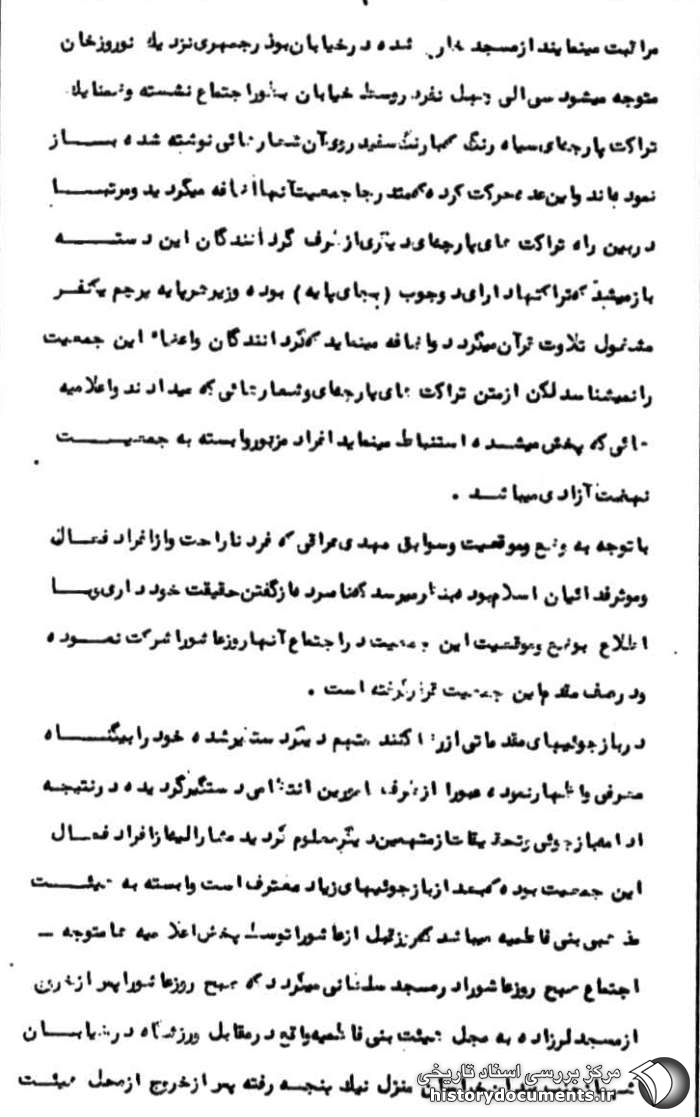 مراقبت مینمایند از مسجد خارج شده در خیابان بوذرجمهری نزدیک نوروزخان
متوجه میشود سی الی چهل نفر در وسط خیابان بطور اجتماع نشسته وضمنا یک
تراکت پارچه‌ای سیاه رنگ که با رنگ سفید روی آن شعارهائی نوشته شده بــاز
نموده‌اند و این عده حرکت کرده که مقدر جا جمعیت آنها اضافه میگردید و مرتبــا
در بین راه تراکت های پارچه‌ای دیگری از طرف گردانندگان این دستــه
باز میشد که تراکتها دارای دو چوب (بجای پایه) بوده و زیر هر پایه پرچم یکنفــر
مشغول تلاوت قرآن میگردد و اضافه مینماید که گردانندگان واعضاء این جمعیت
را نمیشناسد لکن از متن تراکت های پارچه‌ای و شعارهائی که میدادند واعلامیه
هائی که پخش میشــد استنباط مینماید افراد مزبور وابسته به جمعیــت
نهضت آزادی میباشــد .
با توجه به وضع وموقعیت وسوابق مهدی عراقی که فرد ناراحت واز افراد فعــال
وموثر فدائیان اسلام بوده بنظر میرسد که نامبرده از گفتن حقیقت خودداری وبــا
اطلاع بوضع وموقعیت این جمعیت در اجتماع آنها روز عاشورا شرکت نمــوده
ودر صف مقدم این جمعیت قرار گرفته است .
در بازجوئیهای مقدماتی از کنند متهم دیگر دستگیر شده خود را بیگنــاه
معرفی واظهار نموده از طرف مامورین انتظامی دستگیر گردیده در نتیجه
ادامه بازجوئی وتحقیقات از متهمین دیگر معلوم گردید مشارالیه از افراد فعــال
این جمعیت بوده که بعد از بازجوئیهای زیاد معترف است وابسته به هیئــت
مذهبی بنی فاطمیه میباشد که روز قبل از عاشورا توسط پخش اعلامیه ها متوجه ــ
اجتماع صبح روز عاشورا در مسجد سلطانی میگردد که صبح روز عاشورا پس از خروج
از مسجد لرزاده به محل هیئت بنی فاطمیه واقع در مقابل ورزشگاه در خیابــان
منزل نیک پنجه رفته پس از خروج از محل هیئت
مرکز بررسی اسناد تاریخی
historydocuments.ir